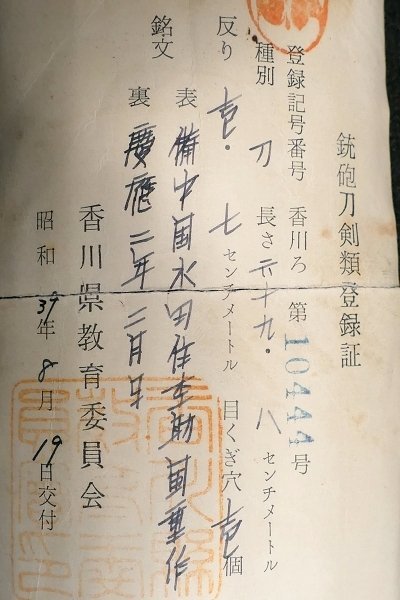 銃砲刀剣類登録証
登録記号番号 香川ろ 第 10444 号
種別 刀 長さ 六十九・八 センチメートル
反り 壱・七 センチメートル 目くぎ穴 壱 個
銘文 表 備中国水田住 国重作
裏 慶應二年二月日
昭和 39 年 8 月 19 日交付
香川県教育委員会